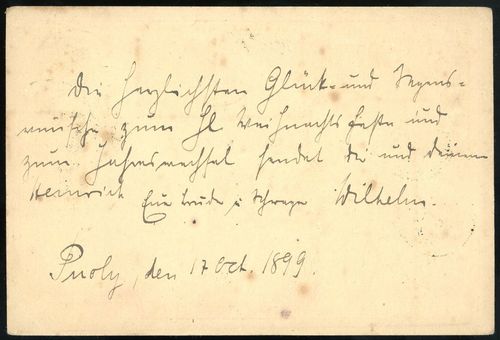 Die herzlichsten Glück- und Segens-
wünsche zum hl Weihnachtsfeste und
zum Jahreswechsel sendet dir und deinem
Heinrich Euer Bruder u. Schwager Wilhelm.
den 17 Oct. 1899.